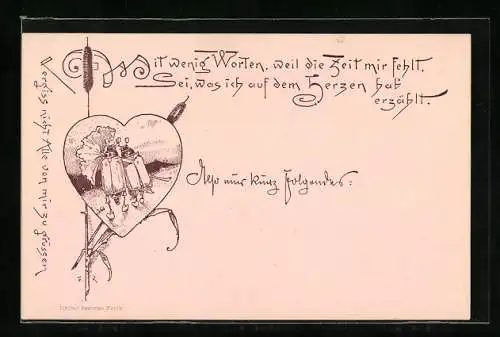 Mit wenig Worten, weil die Zeit mir fehlt,
Sei, was ich auf dem Herzen hab'
erzählt.
Also nur kurz Folgendes:
Vergiss nicht Alle von mir zu grüssen